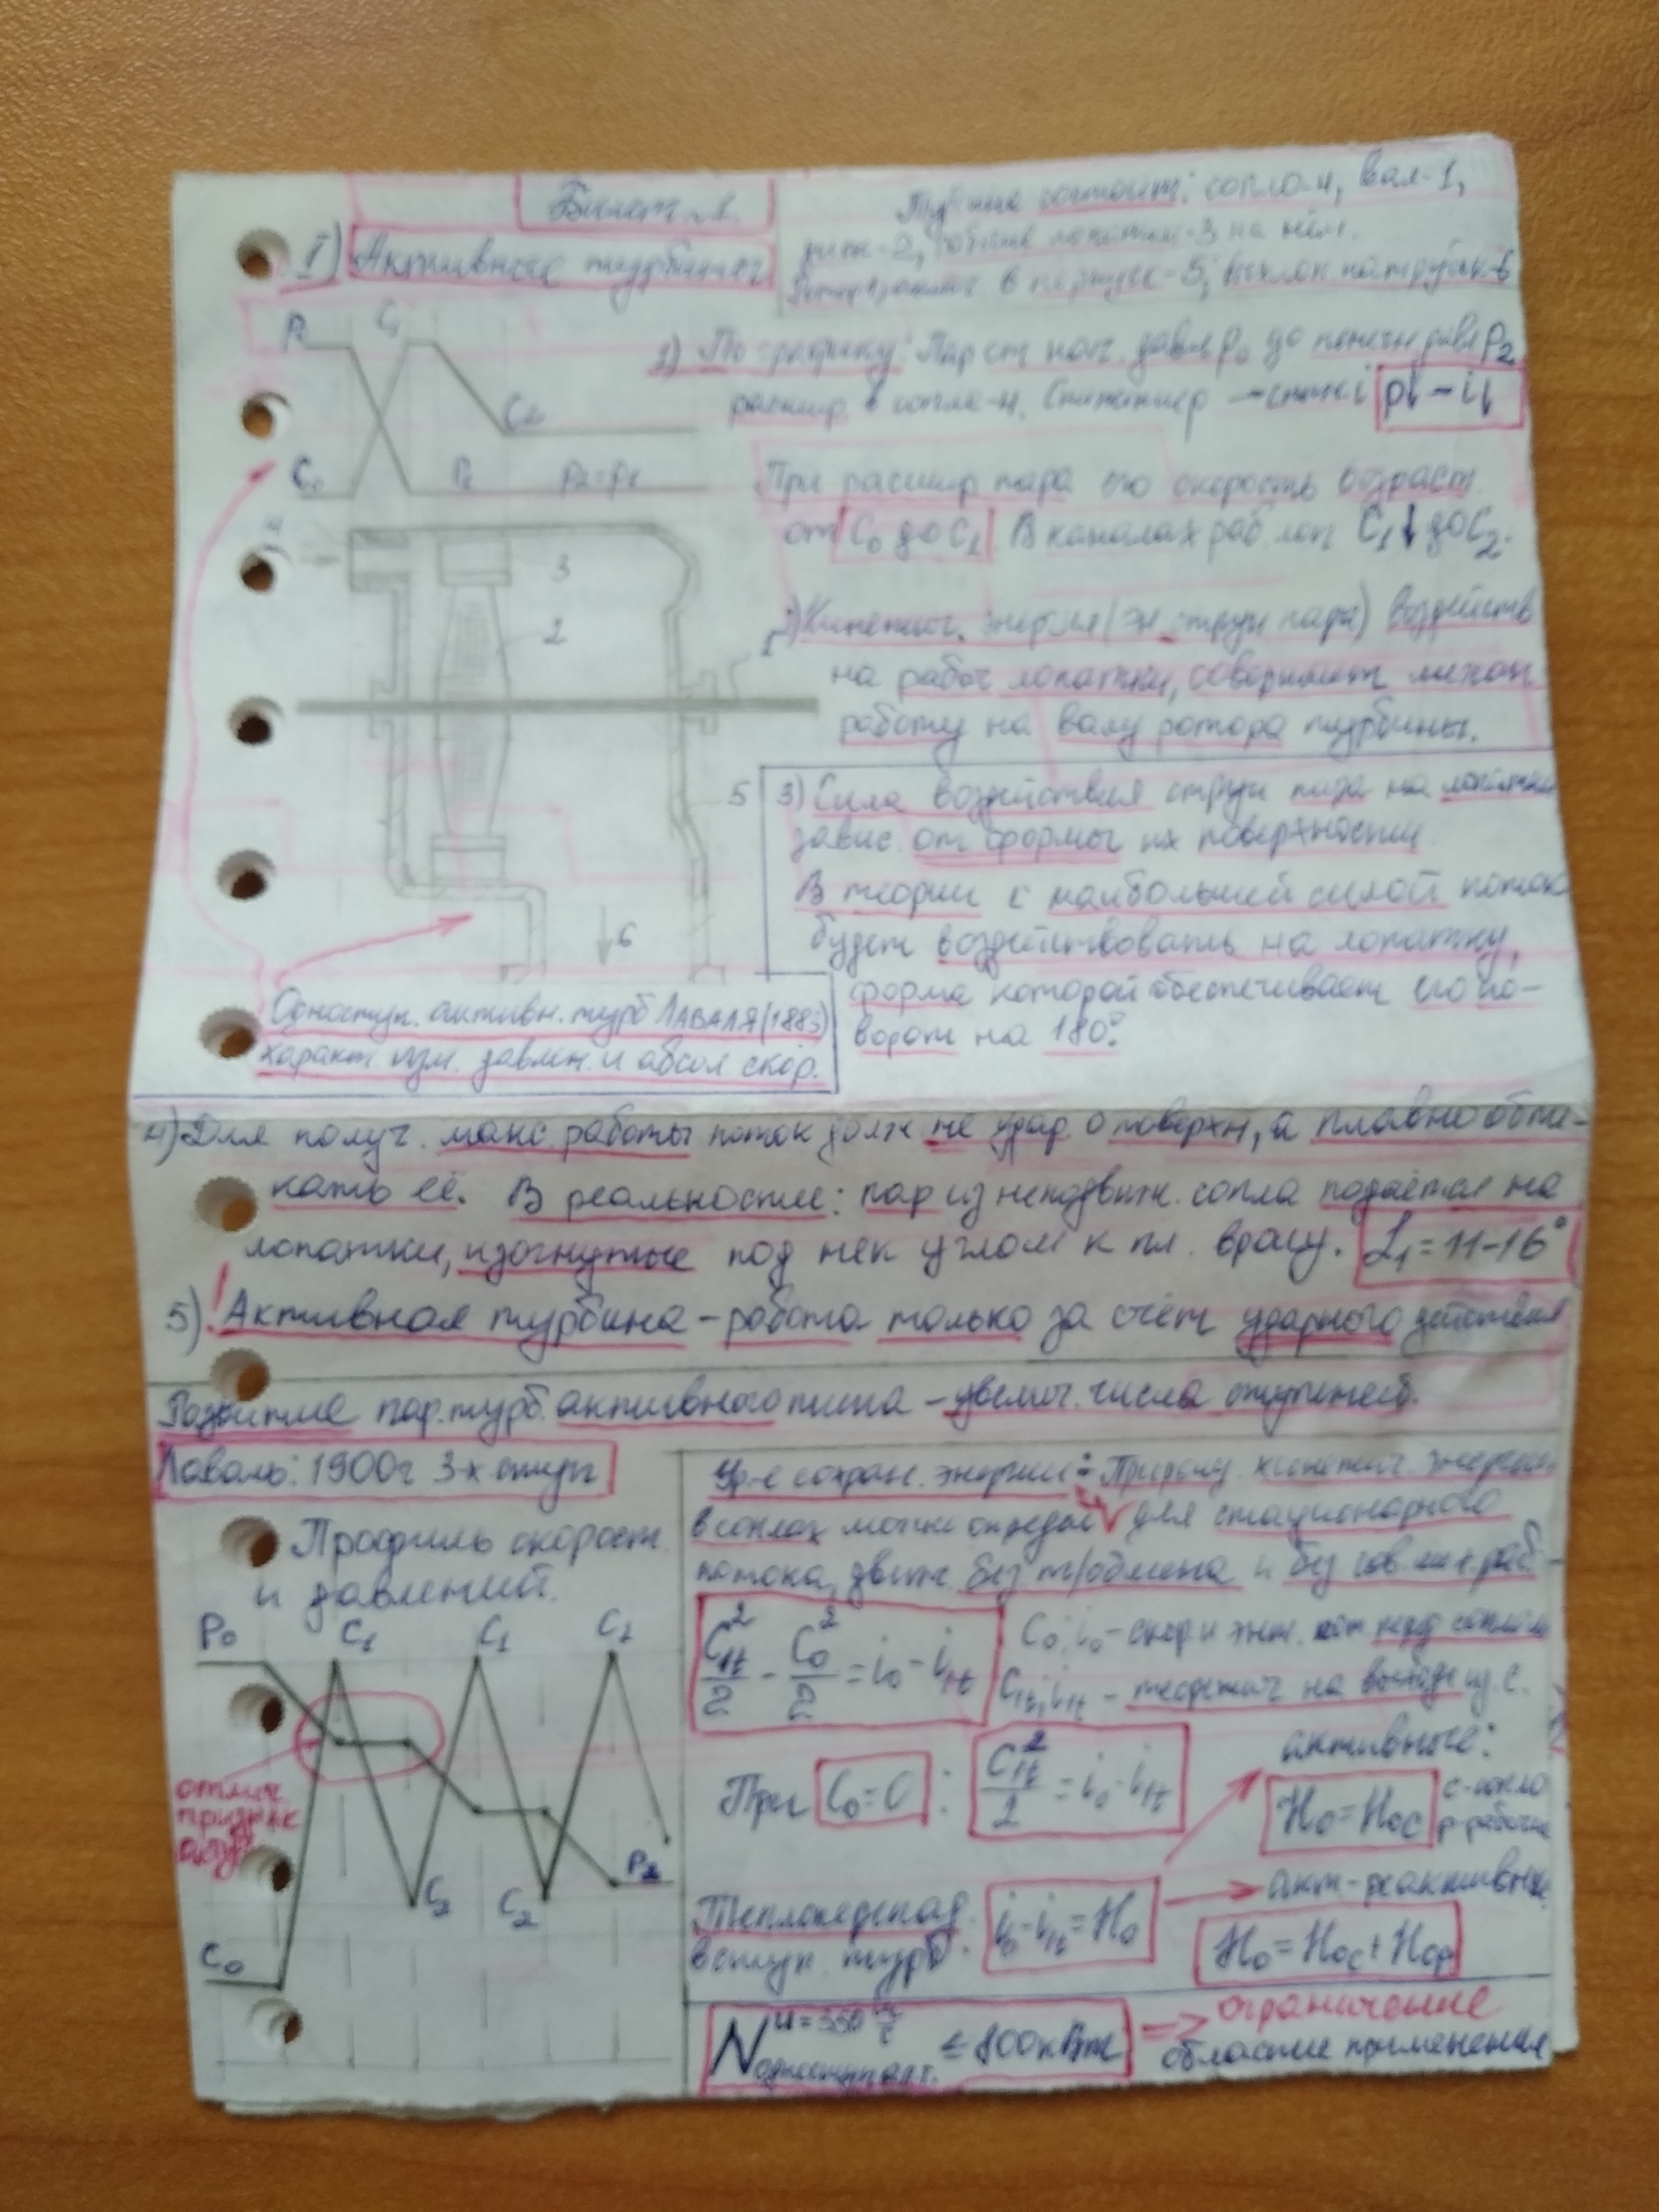 Билет 1
I) Активные турбины
Турбина состоит: сопло-4, вал-1,
диск-2, рабочие лопатки-3 на нём.
в корпусе-5, выхлоп патрубок-6
P₀ C₁
C₂
C₀ P₁ P₂=P₁
1) По графику: Пар от нач. давл p₀ до конечн давл P₂
расшир в сопле-4. p↓-i↓
При расшир пара его скорость возраст
от C₀ до C₁. В каналах раб. лоп C₁↓ до C₂.
2) Кинетич. энергия (эн. струи пара) воздейств
на рабоч лопатки, совершает механ
работу на валу ротора турбины.
4
3
2
1
5
6
3) Сила воздействия струи пара на лопатки
завис. от формы их поверхности
В теории с наибольшей силой поток
будет воздействовать на лопатку,
форма которой обеспечивает его по-
ворот на 180°.
Одноступ. активн. турб ЛАВАЛЯ (1883)
характ изм. давлен. и абсол скор.
4) Для получ. макс. работы поток долж не удар о поверхн, а плавно обте-
кать её. В реальности: пар из неподвижн. сопла подаётся на
лопатки, изогнутые под нек углом к пл. вращ. α₁=11-16°
5) ! Активная турбина - работа только за счёт ударного действия
Развитие пар. турб. активного типа - увелич. числа ступеней.
Лаваль: 1900г 3-х ступ
Профиль скорост
и давлений.
P₀ C₁ C₁ C₁
отлич
признак
C₂ C₂ P₂
C₀
Ур-е сохран. энергии: Прирост кинетич. энергии
в соплах можно определ для стационарного
потока, движ. без т/обмена и без сов. мех. раб.
C₁t²/2 - C₀²/2 = i₀ - i₁t
C₀, i₀ - скор и энт. перед соплом
C₁t, i₁t - теоретич на выходе из с.
При C₀=0 : C₁t²/2 = i₀-i₁t
активные:
H₀=H₀с
с-сопло
р-рабочие
Теплоперепад
в ступ. турб. i₀-i₁t=H₀
акт-реактивные
H₀=H₀с+H₀р
N одноступ а.т. u=350 м/с ≤ 800 кВт => ограничение
области применения